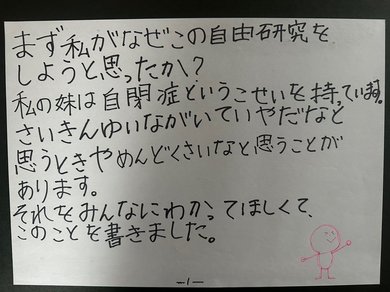 まず私がなぜこの自由研究を
しようと思ったか?
私の妹は自閉症というこせいを持っています。
さいきんゆいながいていやだなと
思うときやめんどくさいなと思うことが
あります。
それをみんなにわかってほしくて、
このことを書きました。
—1—